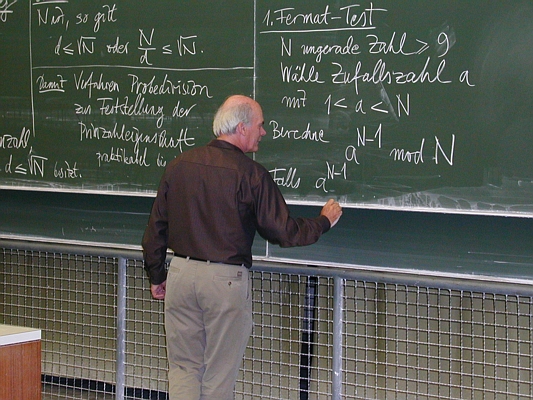 N ist, so gilt
d ≤ √N oder N/d ≤ √N.
Damit Verfahren Probedivision
zur Feststellung der
Primzahleigenschaft
praktikabel bis
d ≤ √N besitzt.
1. Fermat-Test
N ungerade Zahl ≥ 9
Wähle Zufallszahl a
mit 1 < a < N
Berechne
a^N-1 mod N
Falls a^N-1